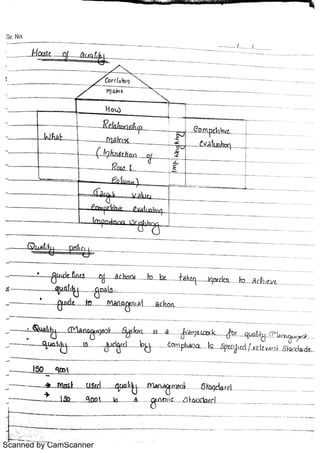 Sr. No.
House of Quality
Correlation
matrix
How
What
Relationship
matrix
( Intersection of
Row &
Column )
Imp. Weighting
Competitive
Evaluation
Target values
Competitive evaluation
Importance weighting
Quality policy
• guide lines of actions to be taken to Achieve
quality goals.
• guide to managerial action
• Quality Management System is a framework for quality Management
• Quality is judged by compliance to specified / relevant standards.
ISO 9001
→ most used quality management standard
→ ISO 9001 is a generic standard
Scanned by CamScanner